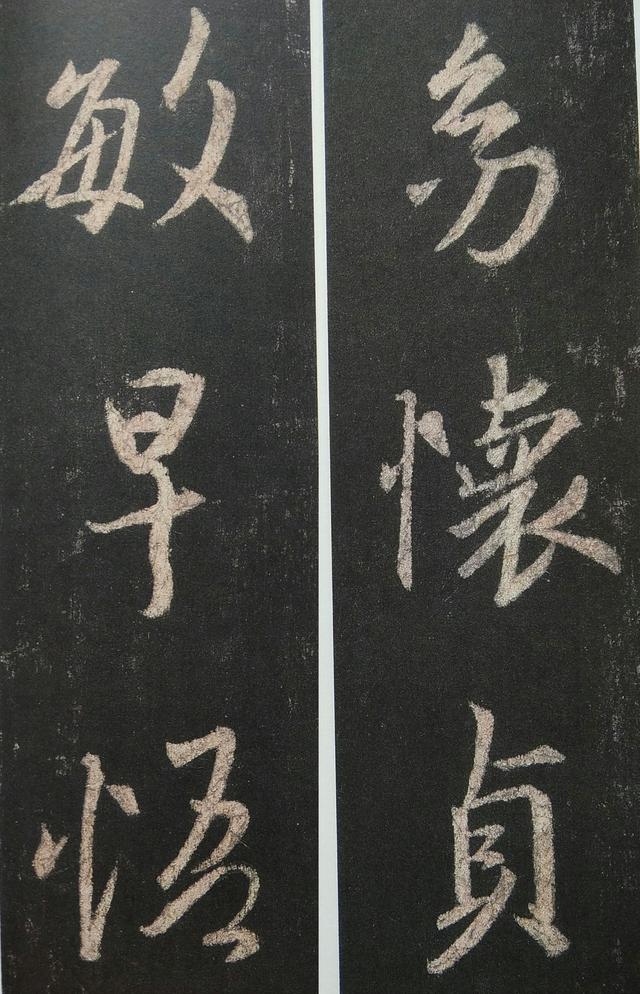 幼懷貞
敏早悟